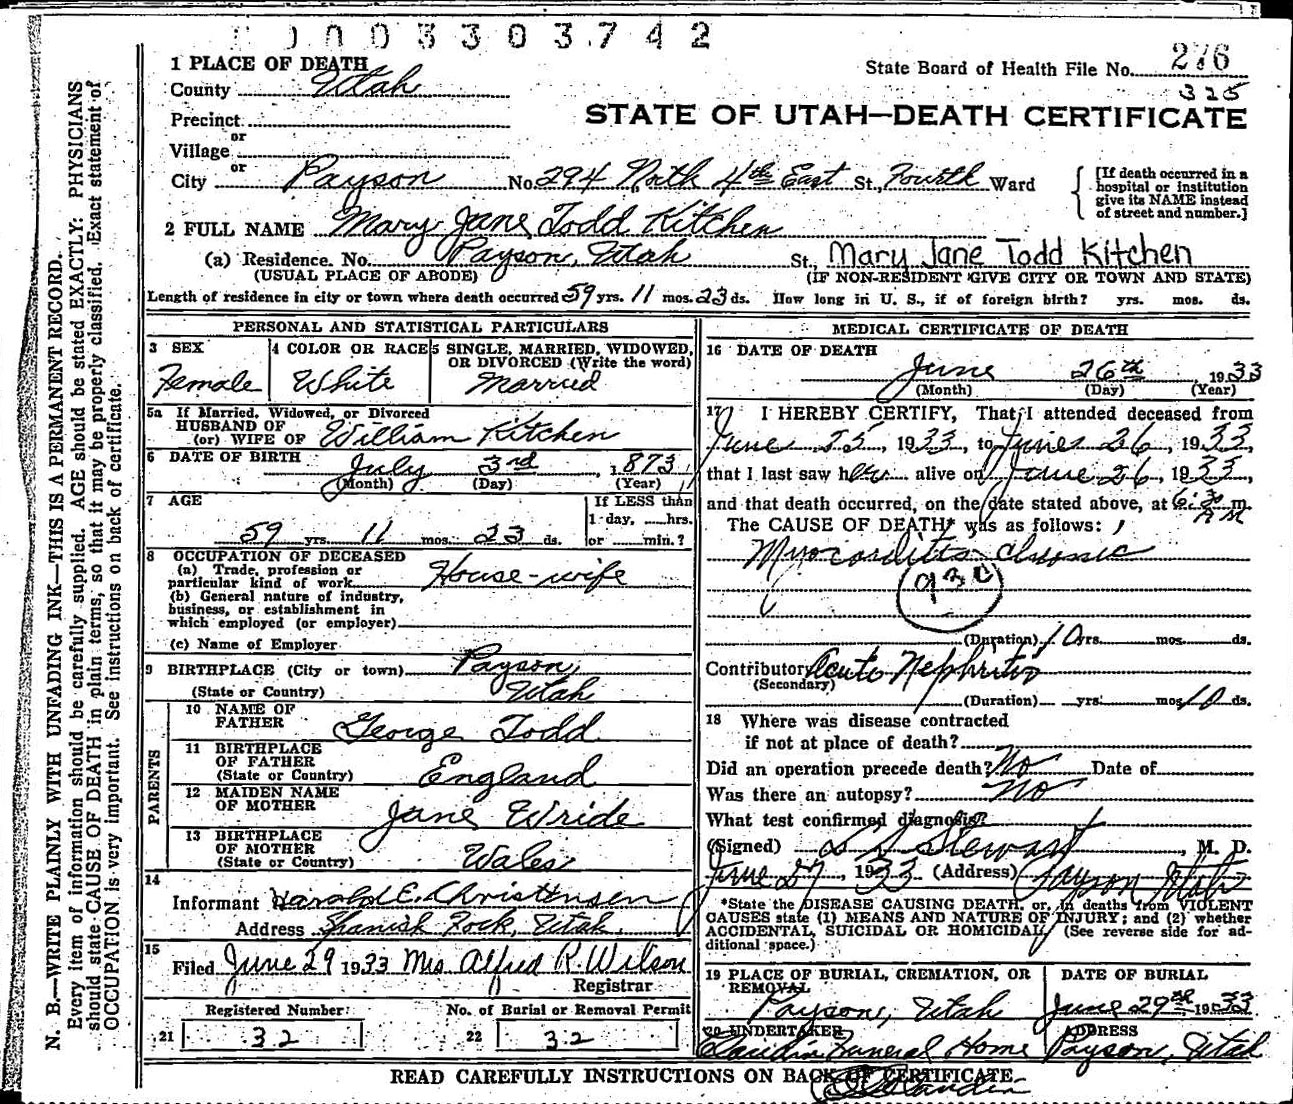 0003303742
1 PLACE OF DEATH
County Utah
State Board of Health File No. 276
325
Precinct
STATE OF UTAH—DEATH CERTIFICATE
or
Village
or
City Payson No. 294 North 4th East St., Fourth Ward
[If death occurred in a hospital or institution give its NAME instead of street and number.]
2 FULL NAME Mary Jane Todd Kitchen
(a) Residence. No. Payson, Utah St., Mary Jane Todd Kitchen
(USUAL PLACE OF ABODE) (IF NON-RESIDENT GIVE CITY OR TOWN AND STATE)
Length of residence in city or town where death occurred 59 yrs. 11 mos. 23 ds. How long in U. S., if of foreign birth? yrs. mos. ds.
PERSONAL AND STATISTICAL PARTICULARS
3 SEX
Female
4 COLOR OR RACE
White
5 SINGLE, MARRIED, WIDOWED,
OR DIVORCED (Write the word)
Married
5a If Married, Widowed, or Divorced
HUSBAND OF
(or) WIFE OF William Kitchen
6 DATE OF BIRTH
July 3rd 1873
(Month) (Day) (Year)
7 AGE
59 yrs. 11 mos. 23 ds.
If LESS than
1 day, ....hrs.
or ......min.?
8 OCCUPATION OF DECEASED
(a) Trade, profession or
particular kind of work House-wife
(b) General nature of industry,
business, or establishment in
which employed (or employer)
(c) Name of Employer
9 BIRTHPLACE (City or town) Payson,
(State or Country) Utah
PARENTS
10 NAME OF
FATHER George Todd
11 BIRTHPLACE
OF FATHER
(State or Country) England
12 MAIDEN NAME
OF MOTHER Jane Wride
13 BIRTHPLACE
OF MOTHER
(State or Country) Wales
14
Informant Harold E. Christensen
Address Spanish Fork, Utah.
15
Filed June 29 1933 Mrs. Alfred R. Wilson
Registrar
Registered Number
21 32
No. of Burial or Removal Permit
22 32
MEDICAL CERTIFICATE OF DEATH
16 DATE OF DEATH
June 26th 1933
(Month) (Day) (Year)
17 I HEREBY CERTIFY, That I attended deceased from
June 25, 1933, to June 26, 1933,
that I last saw her alive on June 26, 1933,
and that death occurred, on the date stated above, at 6:30 m.
A M
The CAUSE OF DEATH* was as follows:
Myocarditis chronic
93c
(Duration) 10 yrs. mos. ds.
Contributory Acute Nephritis
(Secondary)
(Duration) yrs. mos. 10 ds.
18 Where was disease contracted
if not at place of death?
Did an operation precede death? No Date of
Was there an autopsy? No
What test confirmed diagnosis?
(Signed) Stewart, M. D.
June 27, 1933 (Address) Payson Utah
*State the DISEASE CAUSING DEATH, or, in deaths from VIOLENT
CAUSES state (1) MEANS AND NATURE OF INJURY; and (2) whether
ACCIDENTAL, SUICIDAL OR HOMICIDAL. (See reverse side for ad-
ditional space.)
19 PLACE OF BURIAL, CREMATION, OR
REMOVAL
Payson, Utah
DATE OF BURIAL
June 29th 1933
20 UNDERTAKER
Claudin Funeral Home
ADDRESS
Payson, Utah
READ CAREFULLY INSTRUCTIONS ON BACK OF CERTIFICATE
N. B.—WRITE PLAINLY WITH UNFADING INK—THIS IS A PERMANENT RECORD.
Every item of information should be carefully supplied. AGE should be stated EXACTLY: PHYSICIANS
should state CAUSE OF DEATH in plain terms, so that it may be properly classified. Exact statement of
OCCUPATION is very important. See instructions on back of certificate.